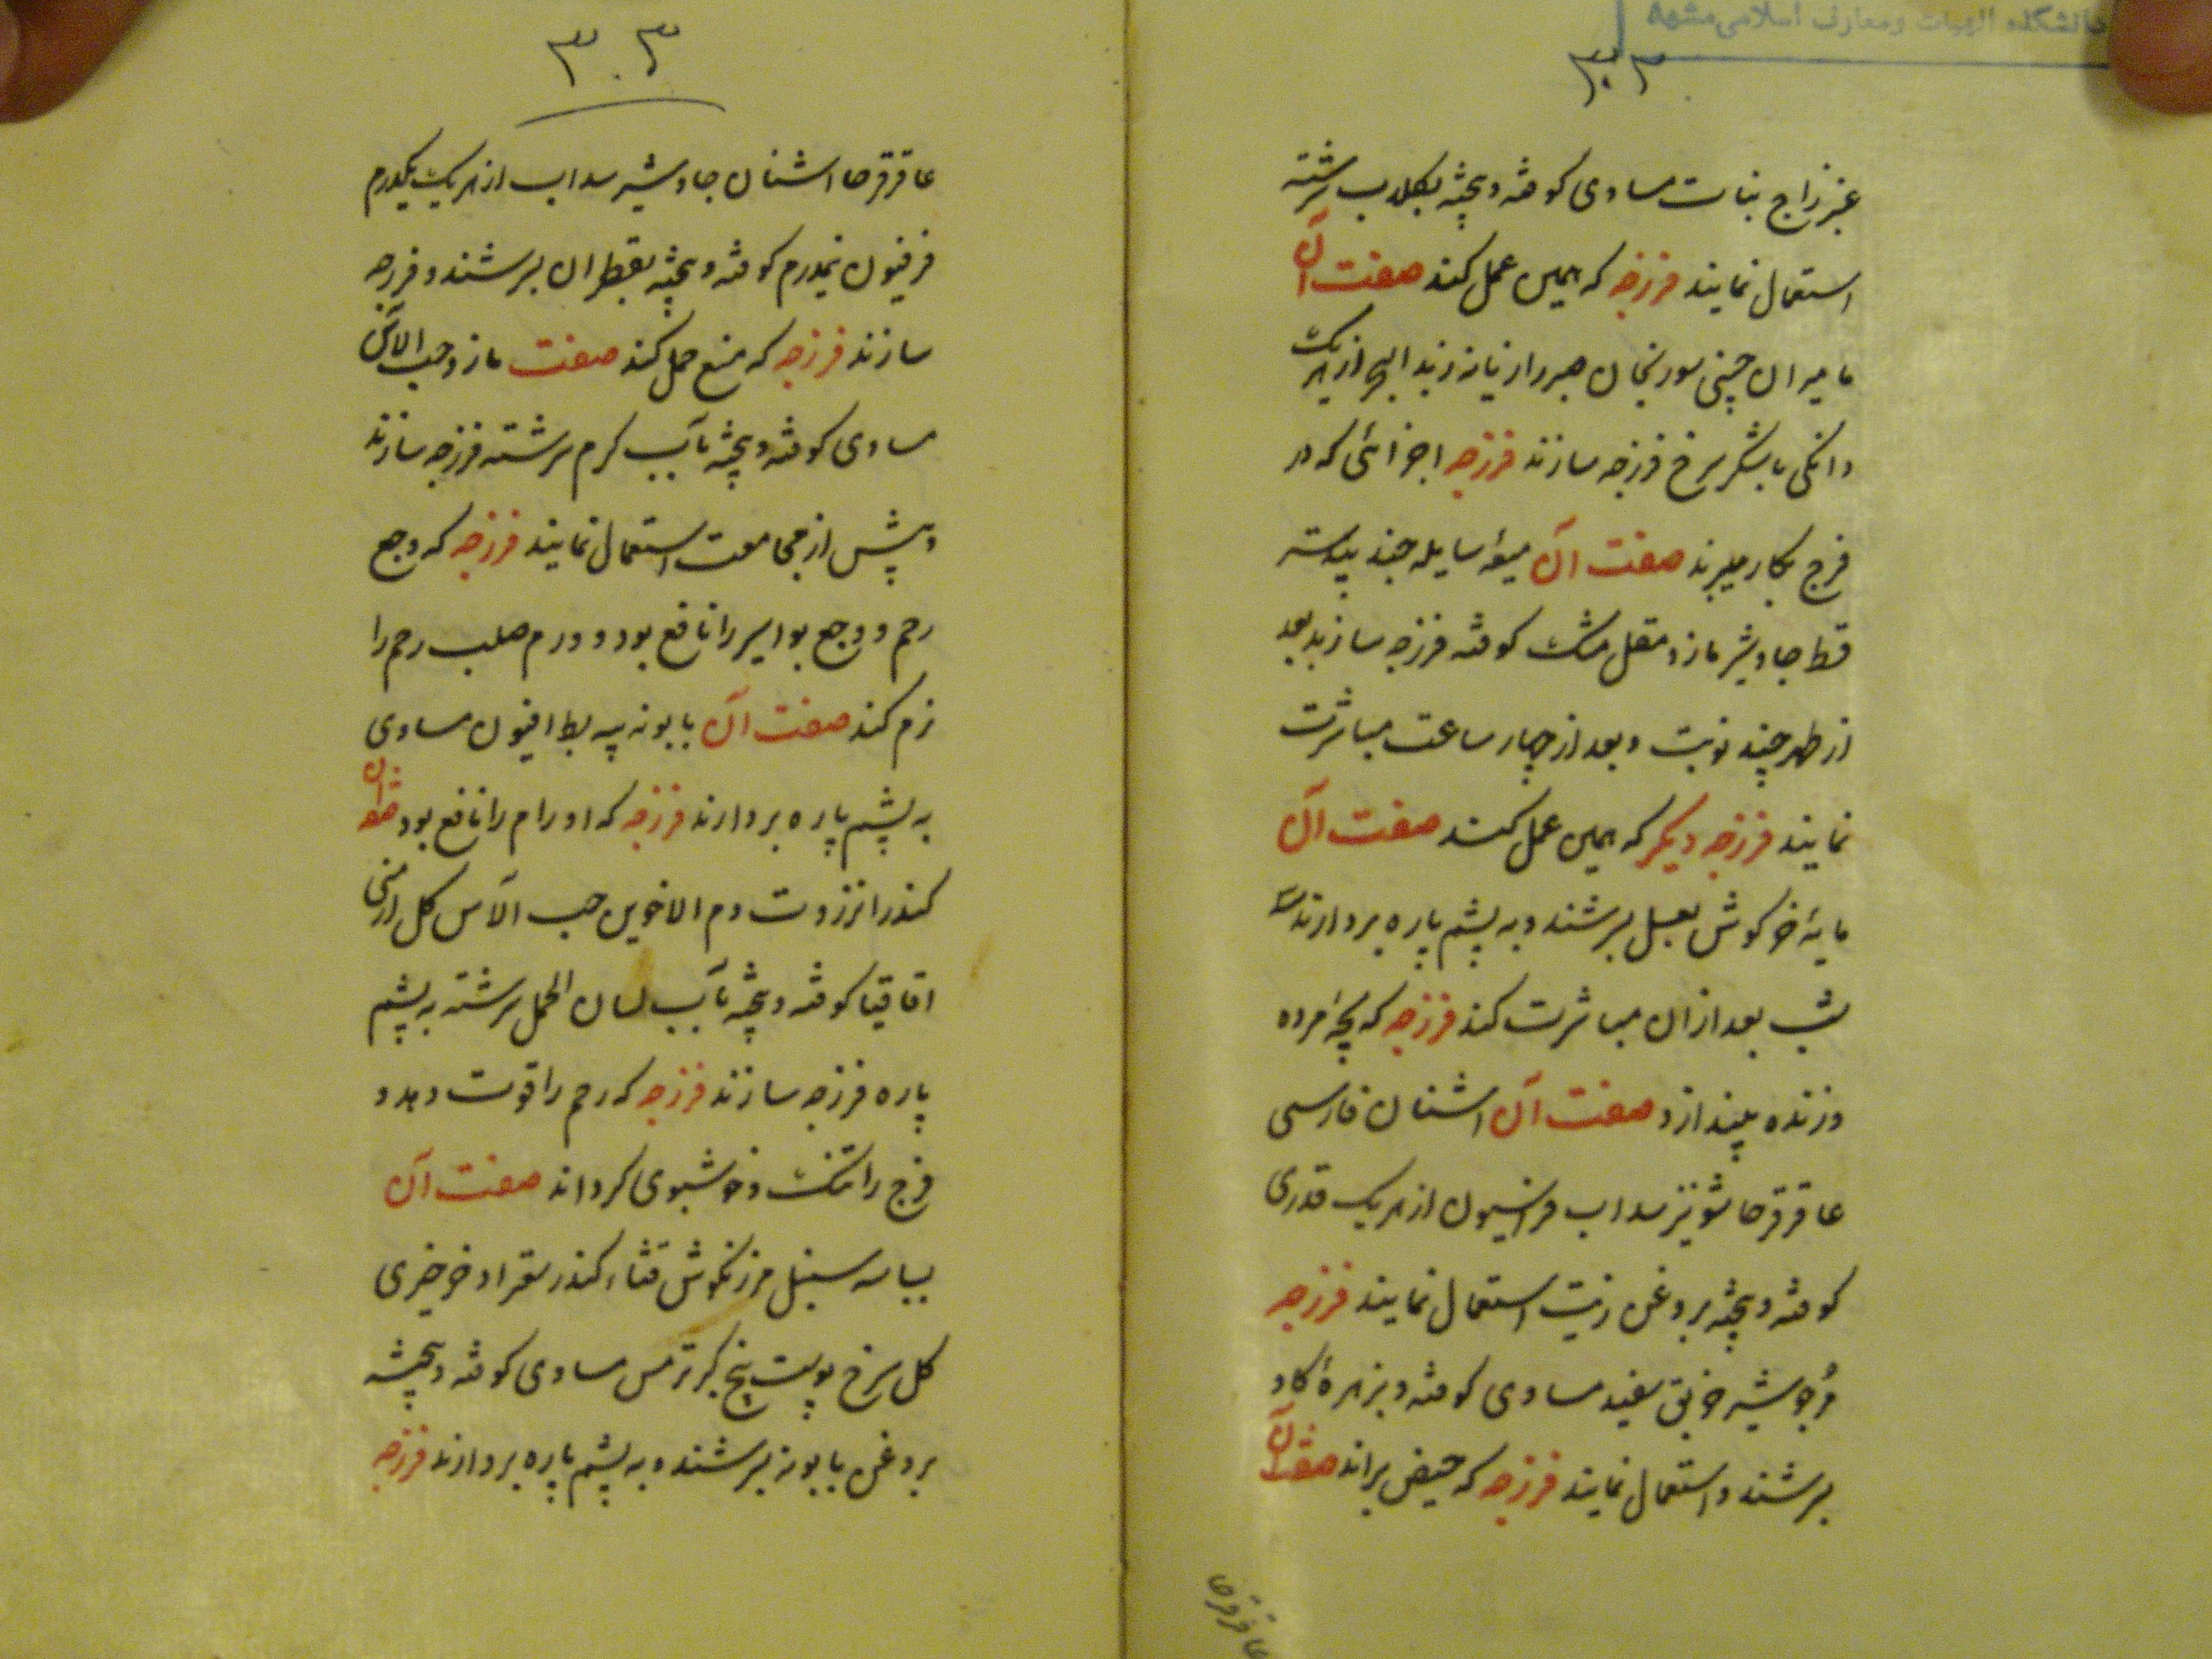 دانشکده الهیات و معارف اسلامی مشهد
۳۰۲
زاج نبات مساوی کوفته و بیخته بکلاب سرشته
استعمال نمایند فرزجه که همین عمل کند صفت آن
مامیران چینی سورنجان صبر رازیانه زبد البحر از هریک
دانکی با شکر سرخ فرزجه سازند فرزجه اجزائی که در
فرج بکار میبرند صفت آن میعه سایله جند بیدستر
قسط جاوشیر مازو مقل مشک کوفته فرزجه سازند بعد
از طهر چند نوبت و بعد از چهار ساعت مباشرت
نمایند فرزجه دیکر که همین عمل کند صفت آن
مایه خرکوش بعسل بسرشند و به پشم پاره بردارند سه
شب بعد از ان مباشرت کند فرزجه که بچه مرده
و زنده بیندازد صفت آن اشنان فارسی
عاقرقرحا شونیز سداب فراسیون از هریک قدری
کوفته و بیخته بروغن زیت استعمال نمایند فرزجه
خربق سفید مساوی کوفته و بزهره کاو
بسرشند و استعمال نمایند فرزجه که حیض براند صفت آن
عاقرقرحا
۳۰۳
عاقرقرحا اشنان جاوشیر سداب از هریک یکدرم
فرفیون نیمدرم کوفته و بیخته بقطران بسرشند و فرزجه
سازند فرزجه که منع حمل کند صفت مازو حب الآس
مساوی کوفته و بیخته بآب کرم سرشته فرزجه سازند
و پیش از مجامعت استعمال نمایند فرزجه که وجع
رحم و وجع بواسیر را نافع بود و ورم صلب رحم را
نرم کند صفت آن بابونه پیه بط افیون مساوی
به پشم پاره بردارند فرزجه که اورام را نافع بود صفت آن
کندر انزروت دم الاخوین حب الآس کل ارمنی
اقاقیا کوفته و بیخته بآب لسان الحمل سرشته به پشم
پاره فرزجه سازند فرزجه که رحم را قوت دهد و
فرج را تنک و خوشبوی کرداند صفت آن
بسباسه سنبل مرزنکوش قثاء کندر خیری
کل سرخ پوست بیخ کبر ترمس مساوی کوفته و بیخته
بروغن بابونه بسرشند و به پشم پاره بردارند فرزجه